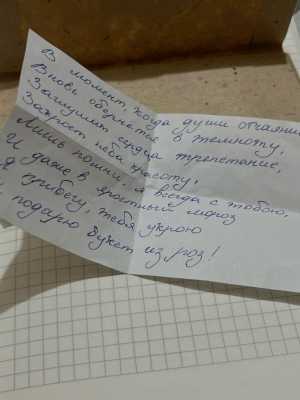 В момент, когда души отчаяни
Вновь обернеться в темноту,
Заглушит сердца трепетание,
Закроет неба красоту,
Лишь помни, я всегда с тобою,
И даже в яростный мороз
Я прибегу, тебя укрою
подарю букет из роз!